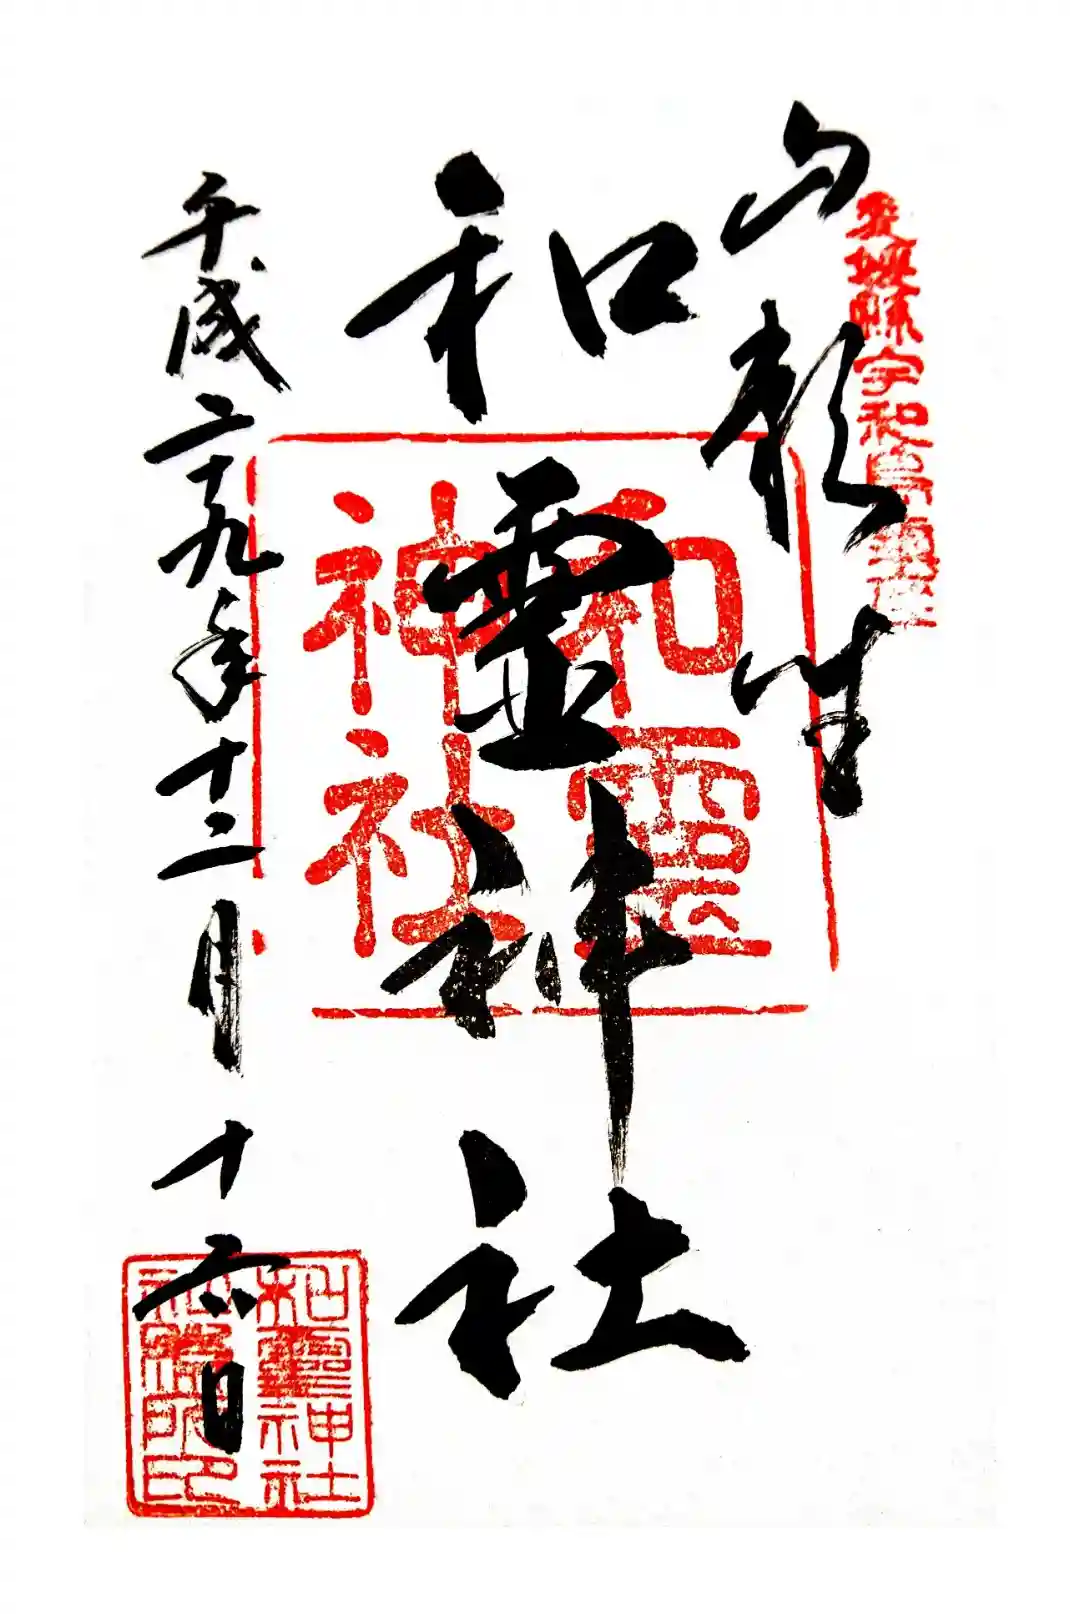 愛媛縣宇和島市鎮座
和靈神社
和靈神社
平成二十九年十二月十六日
和靈神社
社務所印